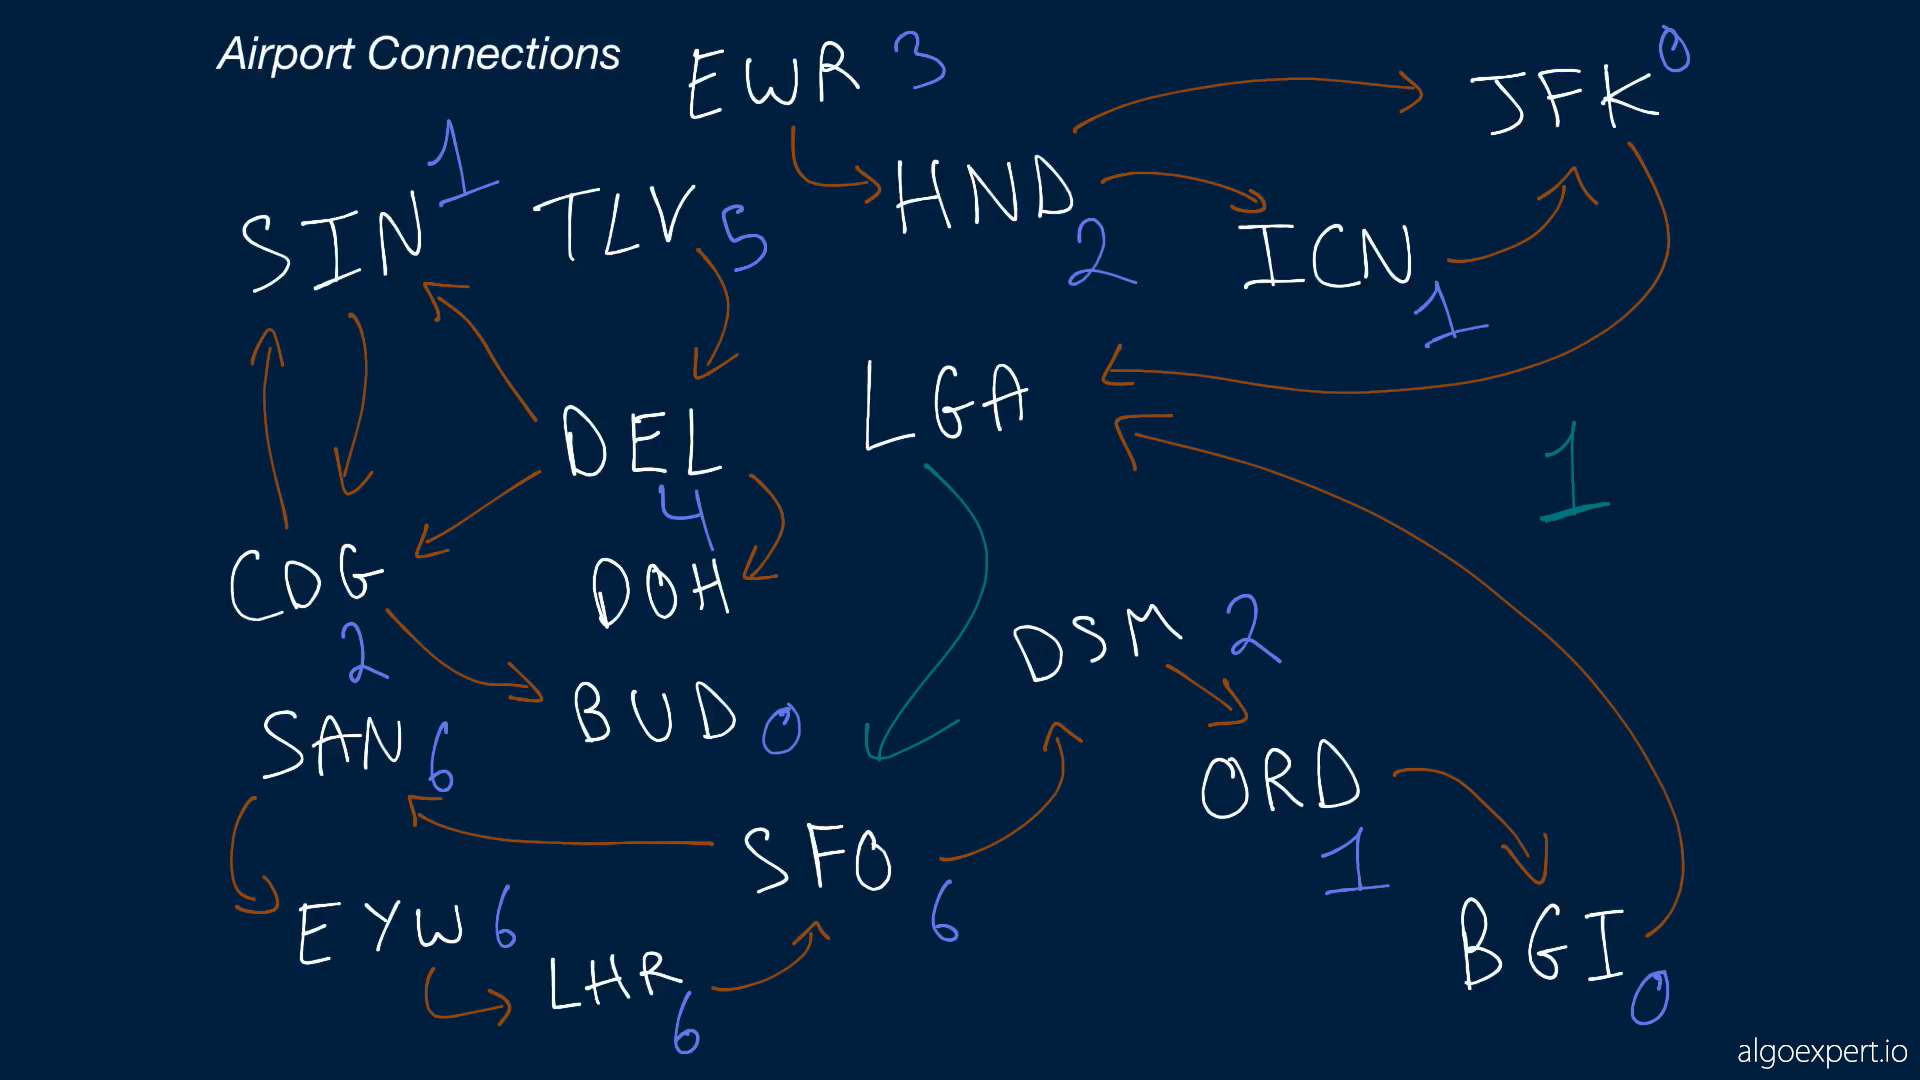 Airport Connections
EWR 3
JFK 0
SIN 1
TLV 5
HND 2
ICN 1
LGA
DEL 4
1
CDG 2
DOH
DSM 2
BUD 0
SAN 6
ORD 1
SFO 6
EYW 6
LHR 6
BGI 0
algoexpert.io